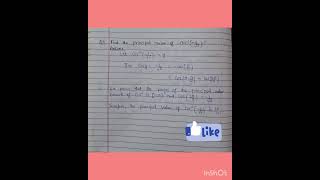 Q5 Find the principal value of cos⁻¹(-1/√2)
Let cos⁻¹(-1/√2) = y
Then cos y = -1/√2 = -cos(π/4)
= cos(π - π/4) = cos(3π/4)
We know that the range of the principal value
branch of cos⁻¹ is [0,π] and cos(3π/4) = -1/√2
Therefore, the principal value of cos⁻¹(-1/√2) is 3π/4
like
InShOt